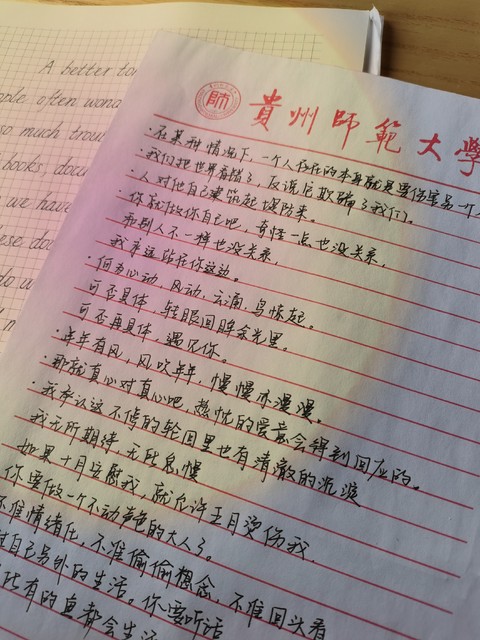 A better to
ople often wond
so much trou
books, docu
we have
ese do
do w
師大
貴州師範大學
·在某种情况下,一个人存在的本身就是要伤害另一个人
·我们把世界看错了,反说它欺骗了我们。
·人对他自己建筑起堤防来。
·你就做你自己吧,奇怪一点也没关系,
和别人不一样也没关系,
我永远站在你这边。
·何为心动,风动,云涌,鸟惊起。
可否具体,轻眼回眸余光里。
可否再具体,遇见你。
·年年有风,风吹年年,慢慢亦漫漫。
·那就真心对真心吧,热忱的爱意会得到回应的。
·我承认这不停的轮回里也有清澈的沉渡
我无所期待,无比怠慢
如果十月安慰我,就允许五月烫伤我.
你要做一个不动声色的大人了。
不准情绪化,不准偷偷想念,不准回头看
过自己另外的生活。你要听话